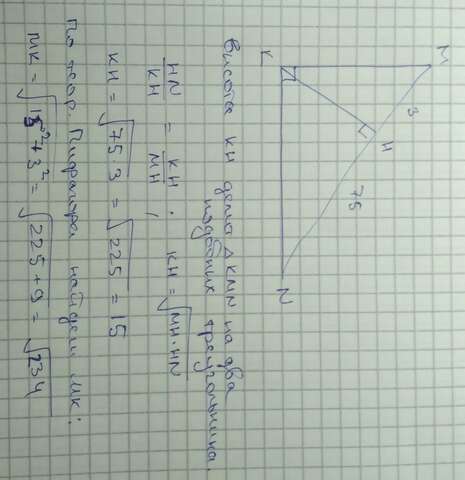 K
M
3
H
75
N
Высота KH делит Δ KMN на два
подобных треугольника.
HN/KH = KH/MH; KH = √MH·HN
KH = √75·3 = √225 = 15
По теор. Пифагора найдем MK:
MK = √15²+3² = √225+9 = √234